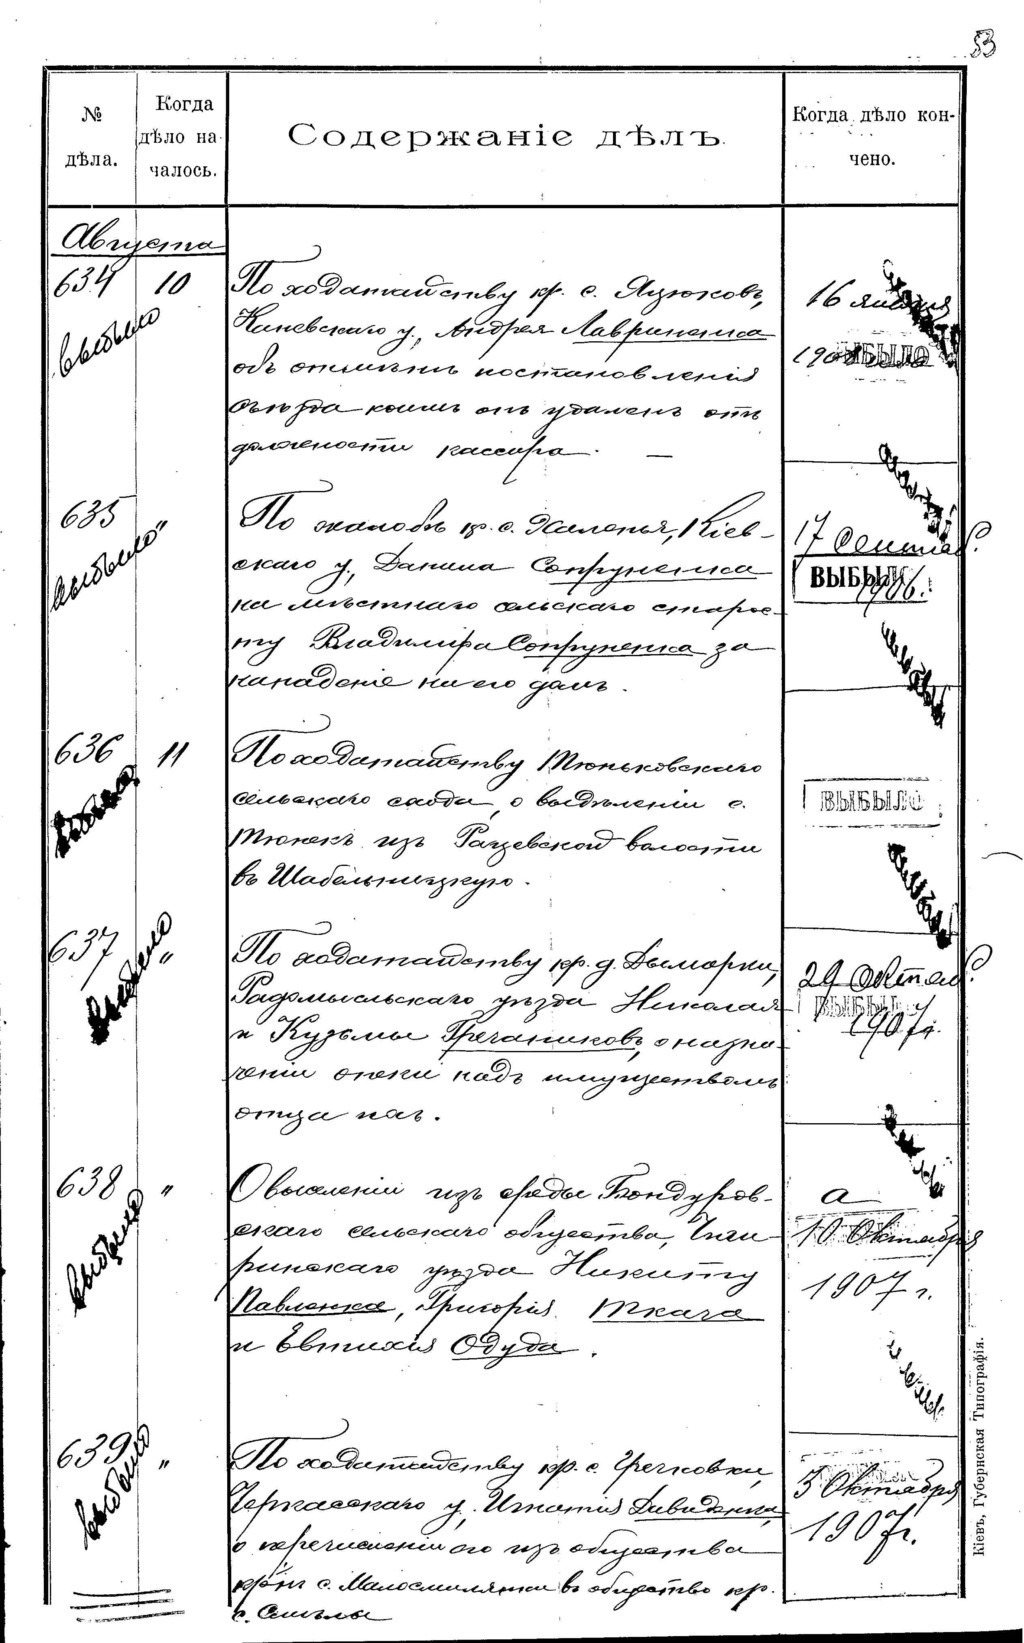 53
№ дѣла.
Когда дѣло на-
чалось.
Содержаніе дѣлъ.
Когда дѣло кон-
чено.
Августа
634 10
выбыло
По ходатайству кр. с. Яцюковъ,
Каневскаго у., Андрея Лавриненка
объ отмѣнѣ постановленія
съѣзда коимъ онъ удаленъ отъ
должности кассира. —
16 января
ВЫБЫЛО
635 "
выбыло
По жалобѣ кр. с. Халепья, Кіев-
скаго у., Данила Сопруненка
на мѣстнаго сельскаго старос-
ту Владиміра Сопруненка за
нападеніе на его домъ.
17 Сентяб.
ВЫБЫЛО
1906 г.
636 11
По ходатайству Тюньковскаго
сельскаго схода, о выдѣленіи с.
Тюнекъ изъ Рацевской волости
въ Шабельницкую.
ВЫБЫЛО
637 "
выбыло
По ходатайству кр. д. Дыморки,
Радомысльскаго уѣзда Николая
и Кузьмы Гречаниковъ, о назна-
ченіи опеки надъ имуществомъ
отца ихъ.
29 Октяб.
ВЫБЫЛО
1907 г.
638 "
выбыло
О выселеніи изъ среды Бондуров-
скаго сельскаго общества, Чиги-
ринскаго уѣзда Никиту
Павленка, Григорія Ткача
и Евтихія Одуда.
а
10 Октября
1907 г.
639 "
выбыло
По ходатайству кр. с. Гречковки,
Черкасскаго у. Игнатія Давиденка,
о перечисленіи его изъ общества
кр-нъ с. Малосмилянки въ общество кр.
с. Смѣлы
3 Октября
1907 г.
Кіевъ, Губернская Типографія.